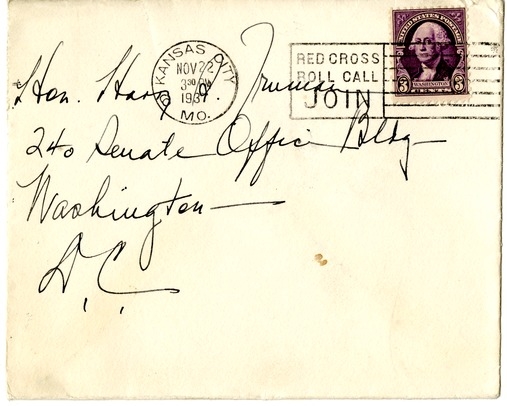 KANSAS CITY
NOV 22
3 30 PM
1937
MO.
RED CROSS
ROLL CALL
JOIN
UNITED STATES POSTAGE
3 3
WASHINGTON
CENTS
Hon. Harry Truman
240 Senate Office Bldg
Washington
D.C.